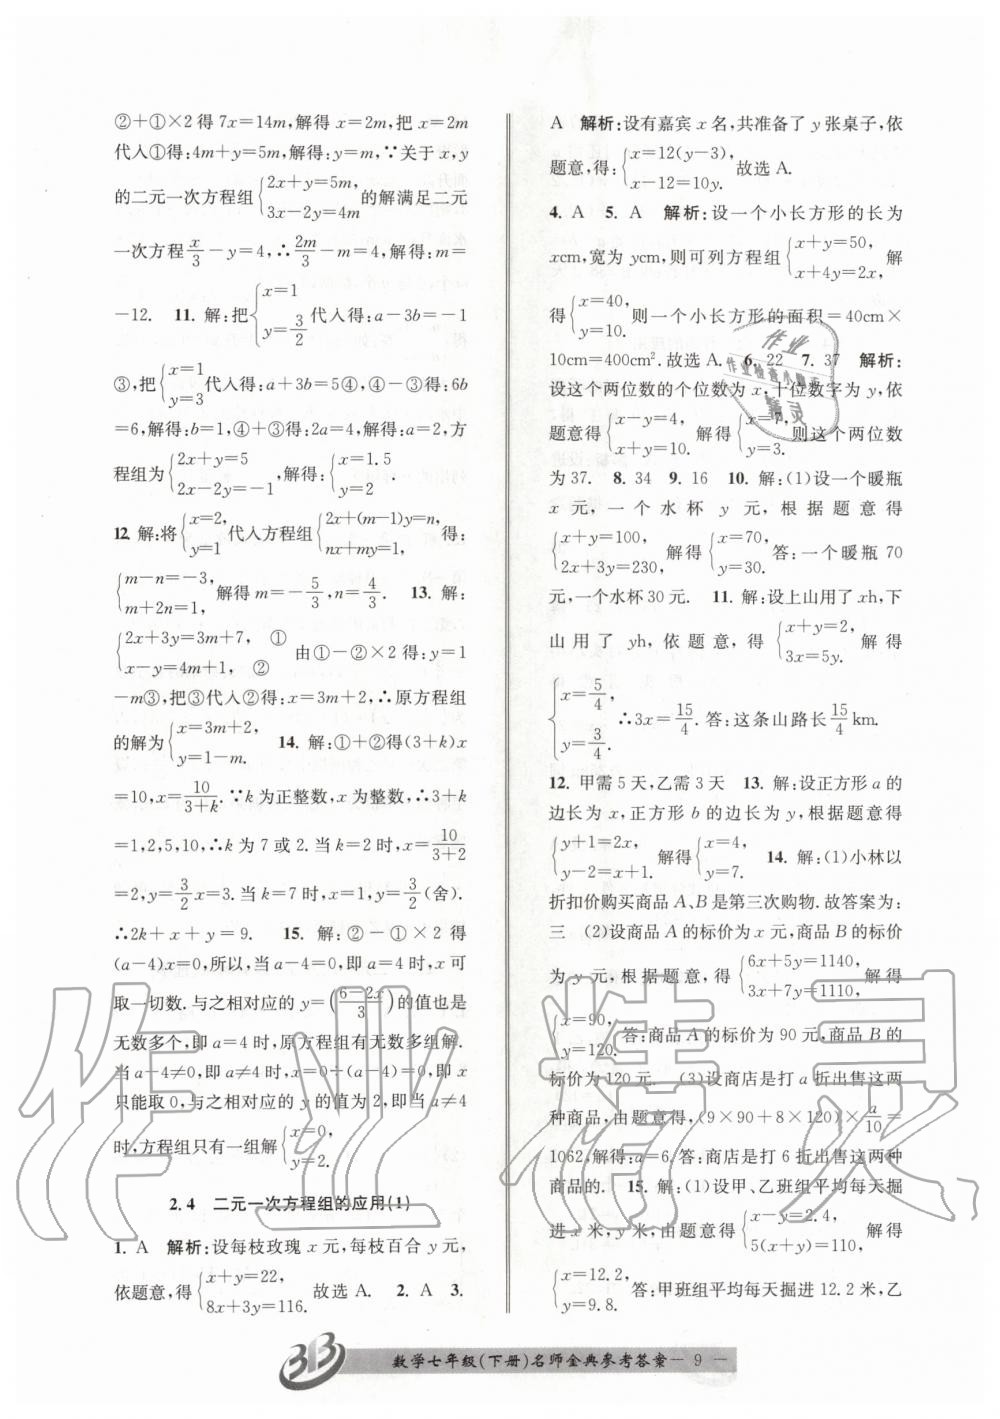 ②+①×2 得 7x=14m,解得 x=2m,把 x=2m
代入①得:4m+y=5m,解得:y=m.∵关于 x,y
的二元一次方程组{2x+y=5m, 3x-2y=4m 的解满足二元
一次方程 x/3 -y=4,∴ 2m/3 -m=4,解得:m=
-12. 11. 解:把{x=1 y=3/2 代入得:a-3b=-1
③,把{x=1 y=3 代入得:a+3b=5④,④-③得:6b
=6,解得:b=1,④+③得:2a=4,解得:a=2,方
程组为{2x+y=5 2x-2y=-1 ,解得:{x=1.5 y=2 .
12 解:将{x=2, y=1 代入方程组{2x+(m-1)y=n, nx+my=1, 得:
{m-n=-3, m+2n=1, 解得 m=-5/3,n=4/3. 13. 解:
{2x+3y=3m+7, ① x-y=4m+1, ② 由①-②×2 得:y=1
-m③,把③代入②得:x=3m+2,∴原方程组
的解为{x=3m+2, y=1-m. 14. 解:①+②得(3+k)x
=10,x=10/3+k.∵k 为正整数,x 为整数,∴3+k
=1,2,5,10,∴k 为 7 或 2. 当 k=2 时,x=10/3+2
=2,y=3/2 x=3. 当 k=7 时,x=1,y=3/2(舍).
∴2k+x+y=9. 15. 解:②-①×2 得
(a-4)x=0,所以,当 a-4=0,即 a=4 时,x 可
取一切数.与之相对应的 y=(6-2x/3)的值也是
无数多个,即 a=4 时,原方程组有无数多组解.
当 a-4≠0,即 a≠4 时,x=0÷(a-4)=0,即 x
只能取 0,与之相对应的 y 的值为 2,即当 a≠4
时,方程组只有一组解{x=0, y=2.
2.4 二元一次方程组的应用(1)
1. A 解析:设每枝玫瑰 x 元,每枝百合 y 元,
依题意,得{x+y=22, 8x+3y=116. 故选 A. 2. A 3.
A 解析:设有嘉宾 x 名,共准备了 y 张桌子,依
题意,得:{x=12(y-3), x-12=10y. 故选 A.
4. A 5. A 解析:设一个小长方形的长为
xcm,宽为 ycm,则可列方程组{x+y=50, x+4y=2x, 解
得{x=40, y=10. 则一个小长方形的面积=40cm×
10cm=400cm².故选 A. 6. 22 7. 37 解析:
设这个两位数的个位数为 x,十位数字为 y,依
题意得{x-y=4, x+y=10. 解得{x=7, y=3. 则这个两位数
为 37. 8. 34 9. 16 10. 解:(1)设一个暖瓶
x 元,一个水杯 y 元,根据题意得
{x+y=100, 2x+3y=230, 解得{x=70, y=30. 答:一个暖瓶 70
元,一个水杯 30 元. 11. 解:设上山用了 xh,下
山用了 yh,依题意,得{x+y=2, 3x=5y. 解得
{x=5/4, y=3/4. ∴3x=15/4.答:这条山路长15/4km.
12. 甲需 5 天,乙需 3 天 13. 解:设正方形 a 的
边长为 x,正方形 b 的边长为 y,根据题意得
{y+1=2x, y-2=x+1. 解得{x=4, y=7. 14. 解:(1)小林以
折扣价购买商品 A、B 是第三次购物.故答案为:
三 (2)设商品 A 的标价为 x 元,商品 B 的标价
为 y 元,根据题意,得{6x+5y=1140, 3x+7y=1110, 解得
{x=90, y=120. 答:商品 A 的标价为 90 元,商品 B 的
标价为 120 元. (3)设商店是打 a 折出售这两
种商品,由题意得,(9×90+8×120)×a/10=
1062,解得:a=6,答:商店是打 6 折出售这两种
商品的. 15. 解:(1)设甲、乙班组平均每天掘
进 x 米,y 米,由题意得{x-y=2.4, 5(x+y)=110, 解得
{x=12.2, y=9.8. 答:甲班组平均每天掘进 12.2 米,乙
数学七年级(下册)名师金典参考答案 — 9 —
作业
作业检查小
精灵
作业精灵